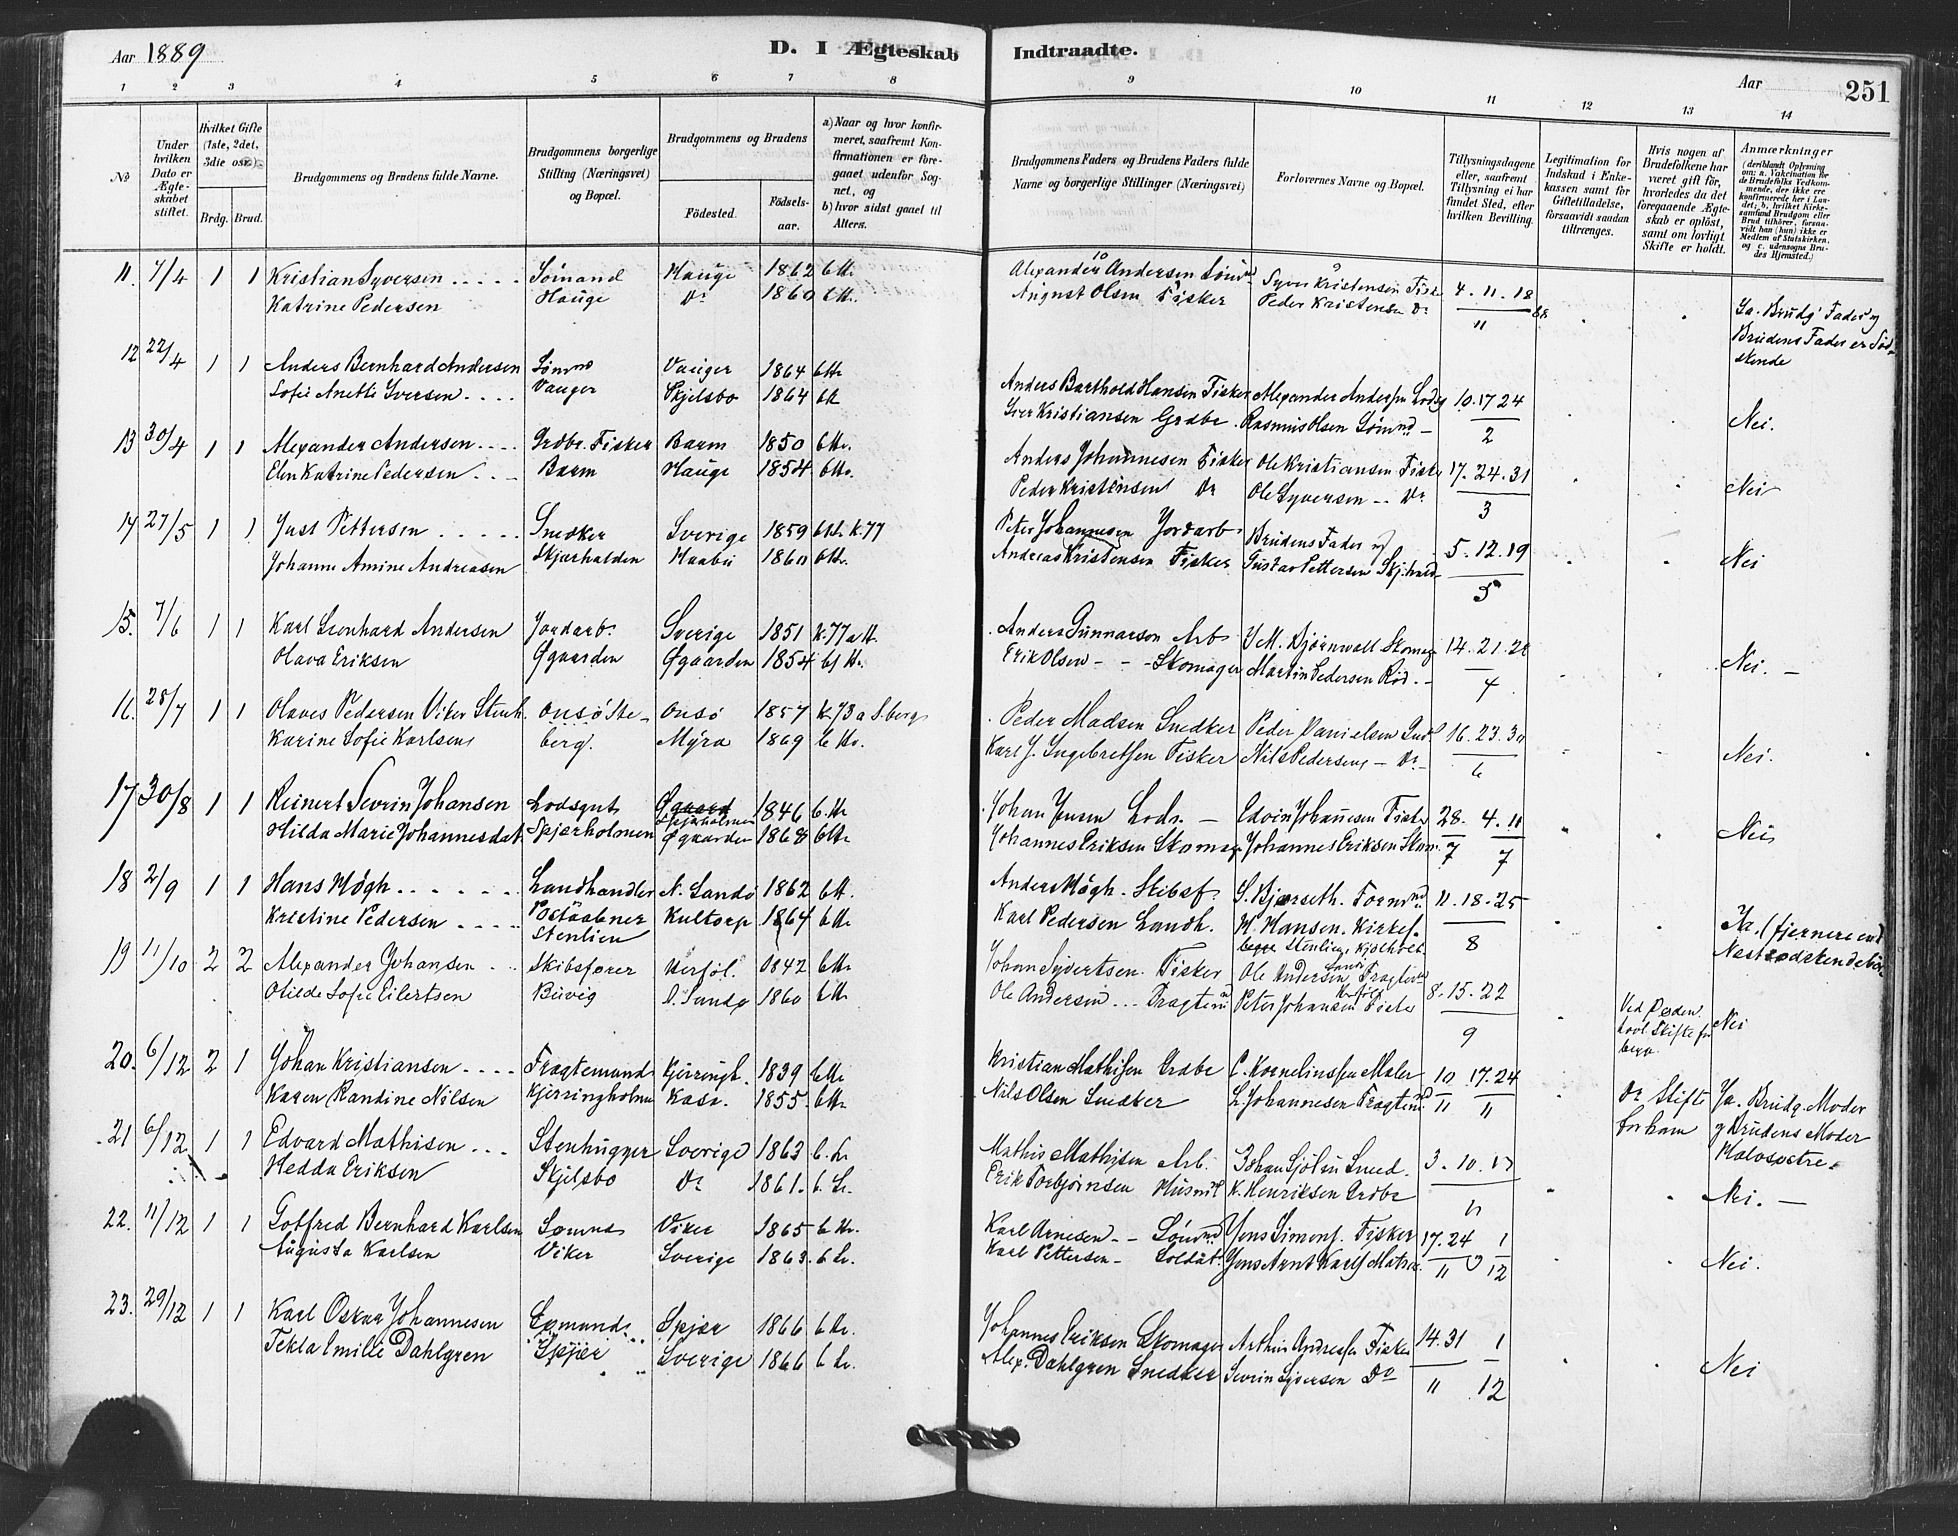 Aar 1889
D. I Ægteskab Indtraadte.
Aar
251
1 2 3 4 5 6 7 8 9 10 11 12 13 14
No
Under hvilken Dato er Ægteskabet stiftet.
Hvilket Gifte (1ste, 2det, 3die osv.)
Brdg. Brud.
Brudgommens og Brudens fulde Navne.
Brudgommens borgerlige Stilling (Næringsvei) og Bopæl.
Brudgommens og Brudens
Fødested. Fødselsaar.
a) Naar og hvor konfirmeret, saafremt Konfirmationen er foregaaet udenfor Sognet, og
b) hvor sidst gaaet til Alters.
Brudgommens Faders og Brudens Faders fulde Navne og borgerlige Stillinger (Næringsvei)
Forlovernes Navne og Bopæl.
Tillysningsdagene eller, saafremt Tillysning ei har fundet Sted, efter hvilken Bevilling.
Legitimation for Indskud i Enkekassen samt for Giftetilladelse, forsaavidt saadan tiltrænges.
Hvis nogen af Brudefolkene har været gift før, hvorledes da det foregaaende Ægteskab er opløst, samt om lovligt Skifte er holdt.
Anmærkninger
(deriblandt Oplysning om: a. Vakcination for de Brudefolks Vedkommende, der ikke ere konfirmerede her i Landet; b. hvilket Kirkesamfund Brudgom eller Brud tilhører, forsaavidt han (hun) ikke er Medlem af Statskirken, og c. udensogns Brudes Hjemsted.)
11. 7/4 1 1 Kristian Syversen Sømand Hauge 1862 b Hr. Alexander Andersen Sømd Syver Kristensen Fisker 4. 11. 18
Katrine Pedersen Hauge Do 1860 b Hr. August Olsen Fisker Peder Kristensen Do 11 88 Ja. Brudg. Fader og
Brudens Fader er Sødskende
12 22/4 1 1 Anders Bernhard Andersen Sømnd Vauger 1864 b Hr Anders Barthold Hansen Fisker Alexander Andersen Lods 10. 17 24
Sofie Anette Iversen Vauger Skjelsbo 1864 b H Iver Kristiansen Grdbr. Rasmus Olsen Sømnd 2 Nei.
13 30/4 1 1 Alexander Andersen Grdbr. Fisker Barm 1850 b Hr. Anders Johannesen Fisker Ole Kristiansen Fisker 17. 24. 31
Elen Katrine Pedersen Barm Hauge 1854 b Hr. Peder Kristensen Do Ole Syversen Do 3 Nei
14 27/5 1 1 Just Pettersen Snedker Sverige 1859 b Hr. k. 77 Peter Johannesen Jordarb. Brudens Fader og 5. 12. 19
Johanne Amine Andreasen Skjærhalden Haabu 1860 b Hr. Andreas Kristensen Fisker Gustav Pettersen Skjhald 5 Nei
15. 7/6 1 1 Karl Leonhard Andersen Jordarb. Sverige 1851 k. 77 a H. Anders Gunnarson Arb J. M. Bjørnwall Skomag 14. 21. 28
Olava Eriksen Øgaarden Øgaarden 1854 b Hr. Erik Olsen Skomager Martin Pedersen Rød. 4 Nei.
16. 28/7 1 1 Olaves Pedersen Viker Stenh. Onsø Ste- Onsø 1857 k. 73 a S.berg Peder Madsen Snedker Peder Danielsen 16. 23. 30
Karine Sofie Karlsen berg. Myra 1869 b Hr. Karl J. Ingebretsen Fisker Nils Pedersen Do 6 Nei.
17 30/8 1 1 Reinert Sevrin Johansen Lodsgut Spjærholmen 1846 b. Hr Johan Jensen Lods. Edvin Johansen Fisker 28. 4. 11
Hilda Marie Johannesdat. Spjærholmen Øgaarden 1868 b Hr Johannes Eriksen Skomag. Johannes Eriksen Skom. 7 7 Nei
18 2/9 1 1 Hans Høgh Landhandler N. Sandø 1862 b H. Anders Høgh. Skibsf. S. Bjærseth. Formnd. 11. 18. 25
Kristine Pedersen Postaabner Kultorp 1864 b Hr Karl Pedersen Landh. H. Hansen. Kirkes. 8 Ja. (fjernere end
Stenlien begge Stenlien, Kjølholt Næstsødskendebørn
19 11/10 2 2 Alexander Johansen Skibsfører Herføl. 1842 b Hr Johan Syvertsen. Fisker Ole Andersen Fragtem
Otilde Sofie Eilertsen Buvig N. Sandø 1860 b Hr Ole Andersen Fragtem. Peter Johansen Fisker 8. 15. 22 Ved Døden. Lovl. Skifte for begge. Nei
9
20. 6/12 2 1 Johan Kristiansen Fragtemand Kjerringh. 1839 b Hr Kristian Mathisen Grdbr C. Kornelinssen Maler 10 17. 24
Karen Randine Nilsen Kjerringholmen Kasa. 1855. b Hr Nils Olsen Snedker L. Johannesen Fragtemd 11 11 Do Skifte for ham Ja. Brudg. Moder
og Brudens Moder
Halvsøstre.
21 6/12 1 1 Edvard Mathisen Stenhugger Sverige 1863 b. Hr Mathis Mathisen Arb. Johan Sjølin Sned. 3. 10. 17
Hedda Eriksen Skjelsbo Do 1861. b. Hr. Erik Torbjørnsen Husmd K. Henriksen Grdbr 11 Nei.
22. 11/12 1 1 Gotfred Bernhard Karlsen Sømnd Viker 1865 b Hr. Karl Arnesen Sømnd Jens Simons. Fisker 17. 24 1
Augusta Karlsen Viker Sverige 1863. b Hr. Karl Pettersen Soldat. Jens Arnt Karls. Matr. 11 12 Nei.
23. 29/12 1 1 Karl Oskar Johannesen Sømand Spjær 1866 b Hr. Johannes Eriksen Skomager Arthur Andresen Fisker 14. 31 1
Tekla Emilie Dahlgren Spjær Sverige 1866 b Hr. Alex. Dahlgren Snedker Sevrin Syversen Do 11 12 Nei